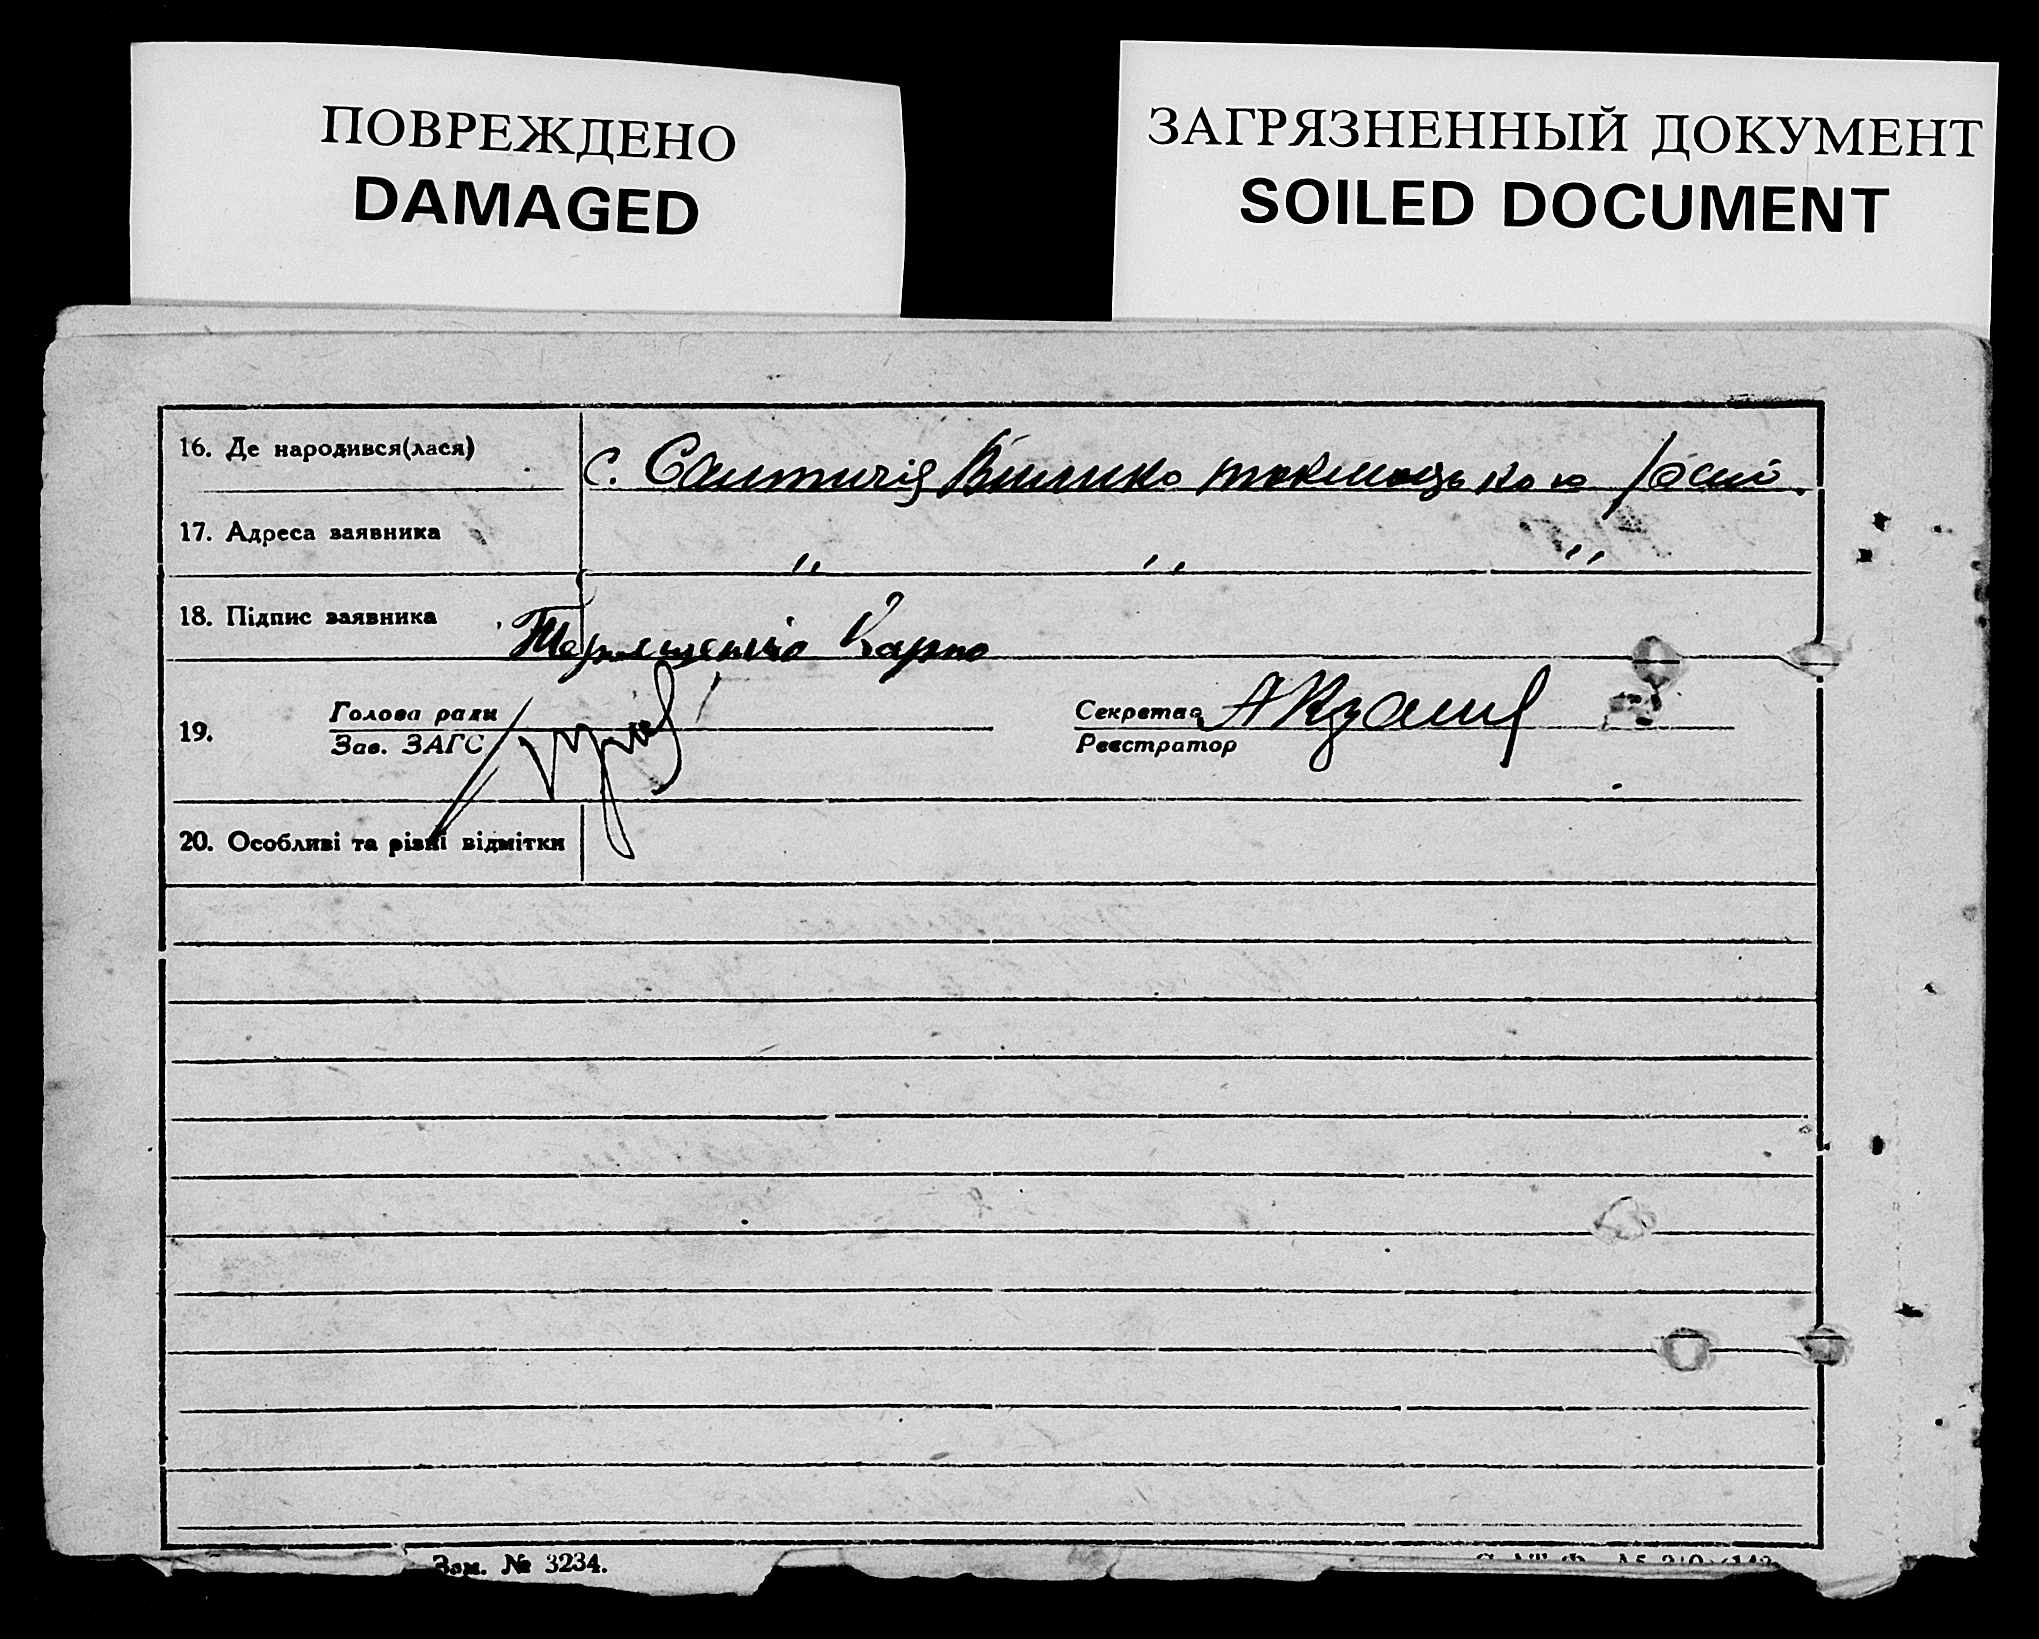 ПОВРЕЖДЕНО
DAMAGED
ЗАГРЯЗНЕННЫЙ ДОКУМЕНТ
SOILED DOCUMENT
16. Де народився(лася)
с. Салтичія Велико токмацького
17. Адреса заявника
" " "
18. Підпис заявника
Терещенко Карпо
19.
Голова ради
Зав. ЗАГС
Секретар
Реєстратор
20. Особливі та різні відмітки
Зам. № 3234.